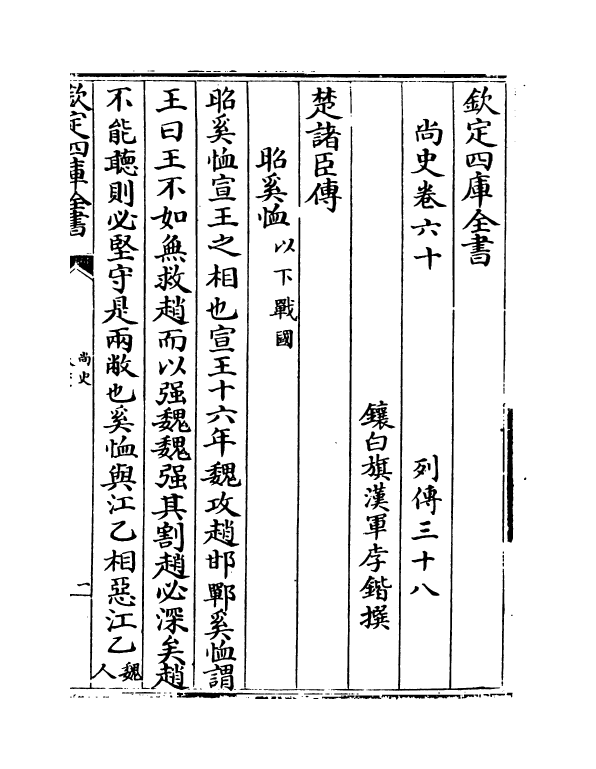 欽定四庫全書
尚史卷六十 列傳三十八
鑲白旗漢軍李鍇撰
楚諸臣傳
昭奚恤以下戰國
昭奚恤宣王之相也宣王十六年魏攻趙邯鄲奚恤謂
王曰王不如無救趙而以强魏魏强其割趙必深矣趙
不能聽則必堅守是兩敝也奚恤與江乙相惡江乙魏人
欽定四庫全書
尚史
二